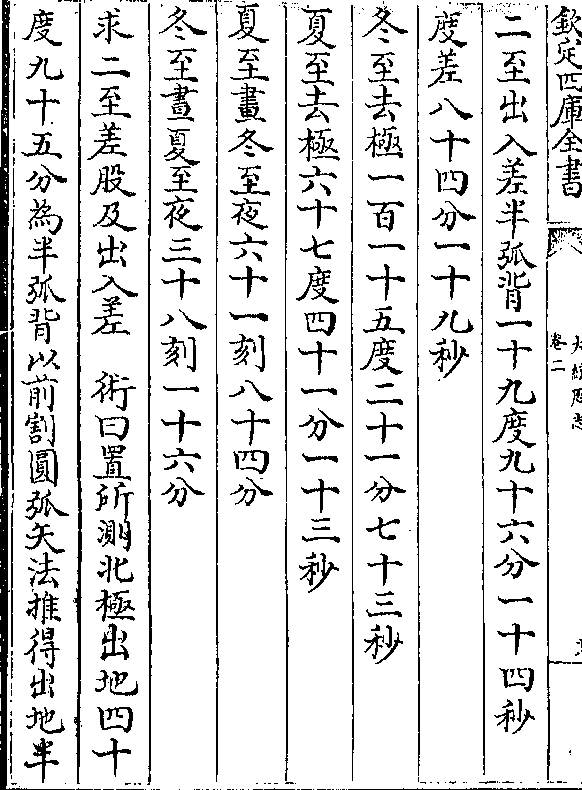 欽定四庫全書
卷二
二至出入差半弧背一十九度九十六分一十四秒
度差八十四分一十九秒
冬至去極一百一十五度二十一分七十三秒
夏至去極六十七度四十一分一十三秒
夏至晝冬至夜六十一刻八十四分
冬至晝夏至夜三十八刻一十六分
求二至差股及出入差　術曰置所測北極出地四十
度九十五分為半弧背以前割圓弧矢法推得出地半